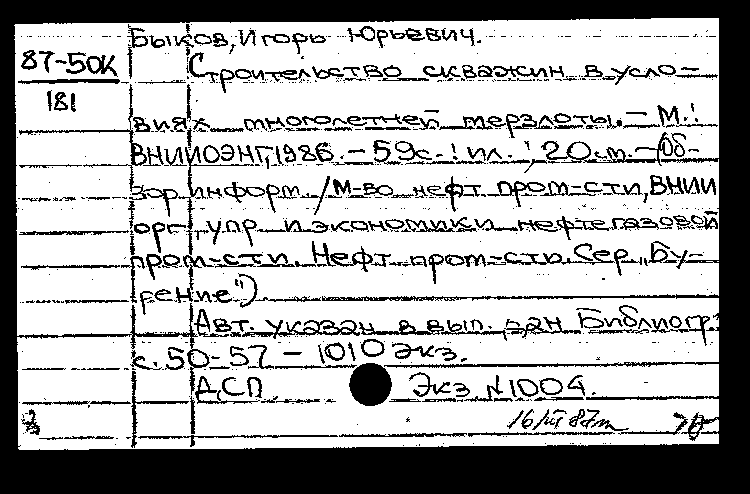 Быков, Игорь Юрьевич.
87-50К
181
Строительство скважин в усло-
виях многолетней мерзлоты. – М.:
ВНИИОЭНГ, 1986. – 59с.: ил.; 20см. – (Об-
зор. информ. /М-во нефт. пром-сти, ВНИИ
орг., упр. и экономики нефтегазовой
пром-сти. Нефт. пром-сть. Сер. "Бу-
рение").
Авт. указан в вып. дан. Библиогр.:
с. 50-57 – 1010 экз.
ДСП. Экз. №1004.
16/III 87г